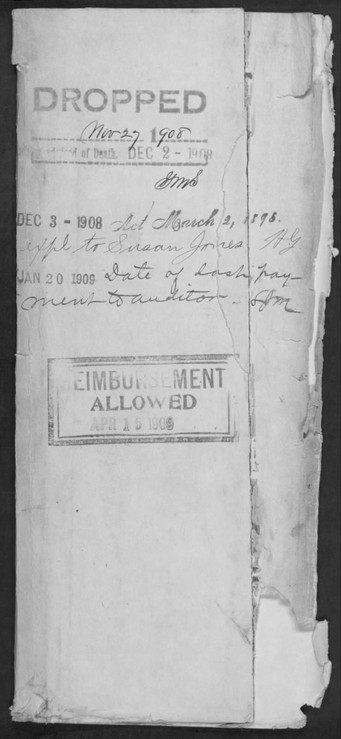 DROPPED
Nov 27 1908
of Death. DEC 2 - 1908
DEC 3 - 1908 Act March 2, 1895.
appl to Susan Jones.
JAN 20 1909 Date of last pay-
ment to auditor.
REIMBURSEMENT
ALLOWED
APR 15 1909